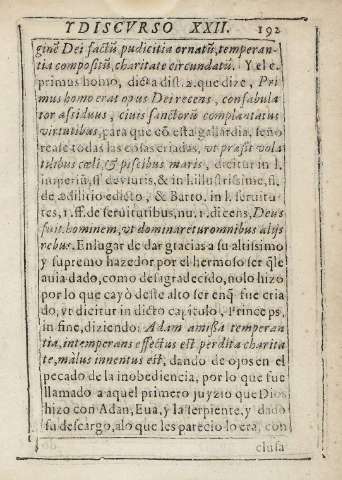 Y DISCVRSO XXII. 192
ginẽ Dei factũ, pudicitia ornatũ, temperan-
tia compositũ, charitate circundatũ. Y el c.
primus homo, dicta dist. 2. que dize, Pri
mus homo erat opus Dei recens, confabula
tor assiduus, ciuis sanctorũ complantatus
virtutibus, para que cõ esta gallardia, seño
reasse todas las cosas criadas, vt præsit vola
tilibus cœli, & piscibus maris, dicitur in l.
in &
de ædilitio edicto, & Barto. in l. seruitu-
tes, 1. ff. de seruitutibus, nu. 1. dicens, Deus
fecit hominem, vt dominaretur omnibus alijs
rebus. En lugar de dar gracias a su altissimo
y supremo hazedor por el hermoso ser q̃ le
auia dado, como desagradecido, no lo hizo
por lo que cayò deste alto ser en q̃ fue cria
do, vt dicitur in dicto capitulo, Princeps,
in fine, diziendo: Adam amissa temperan
tia, intemperans effectus est perdita charita
te, malus inuentus est, dando de ojos en el
pecado de la inobediencia, por lo que fue
llamado a aquel primero juyzio que Dios
hizo con Adan, Eua, y la serpiente, y dado
su descargo, a lo que les parecio lo era, con
clusa